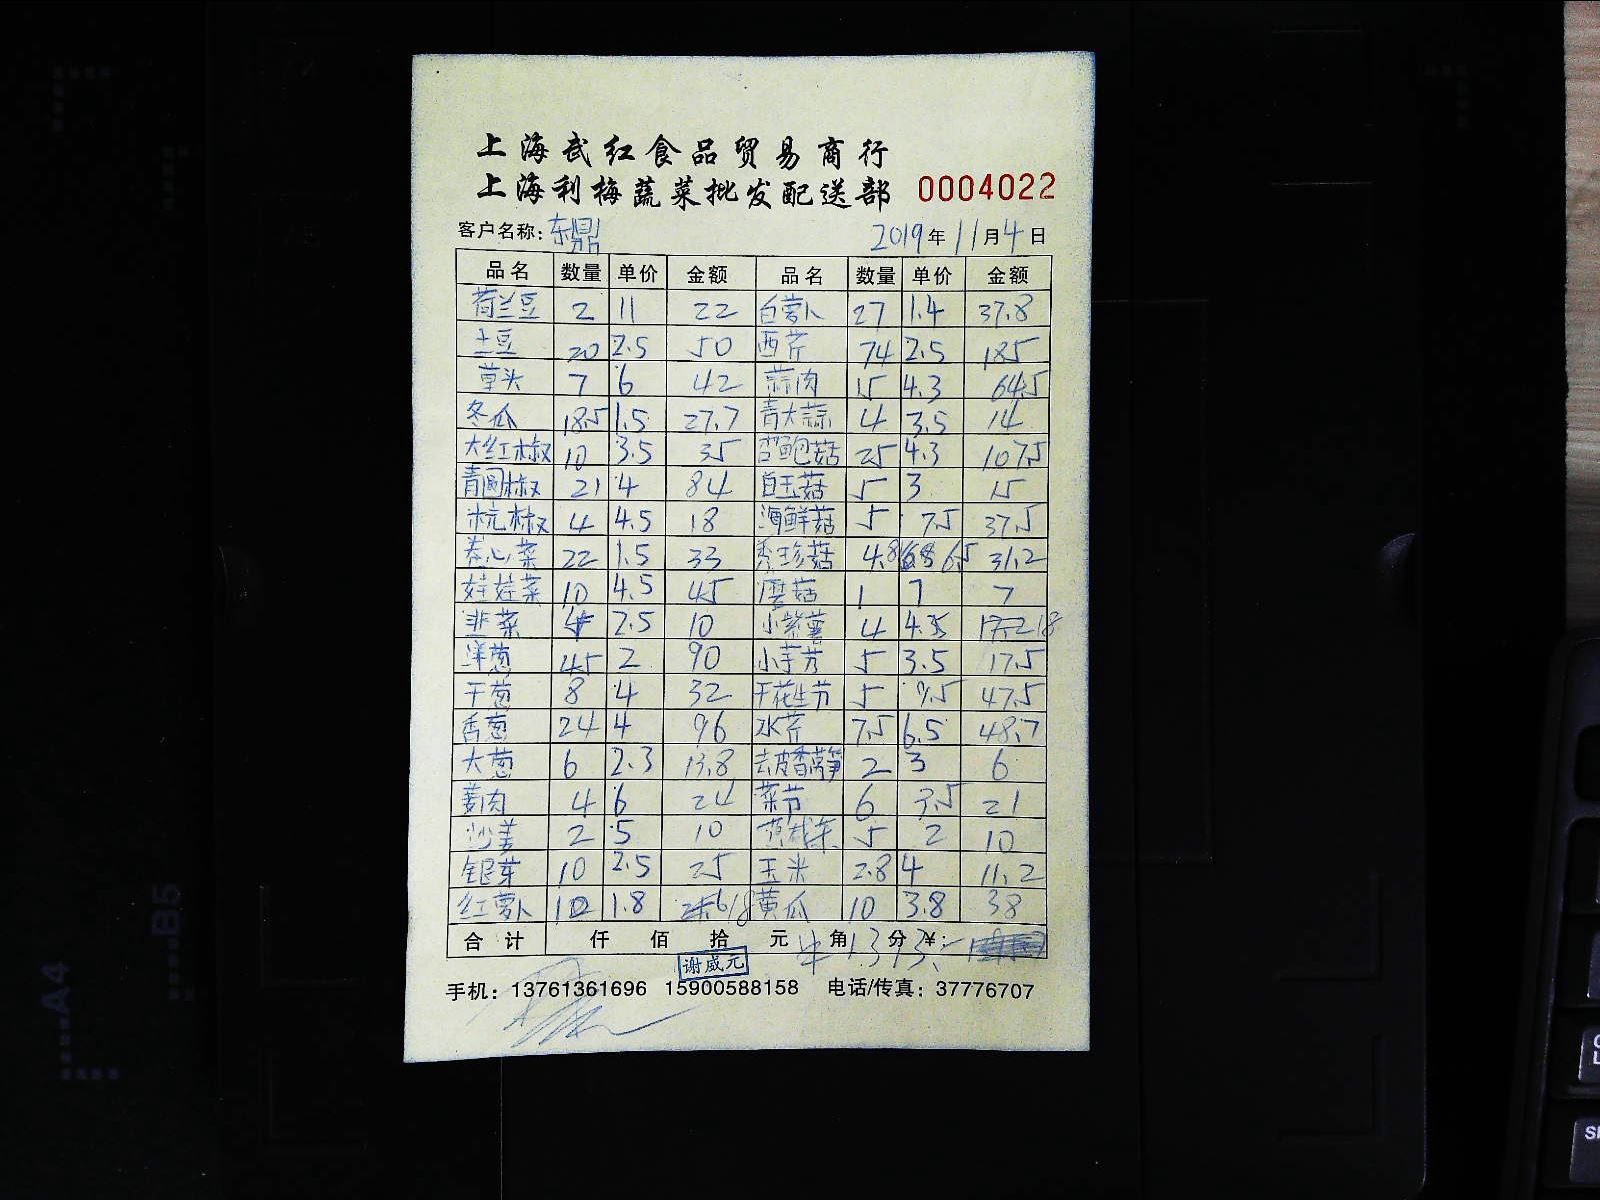 上海武红食品贸易商行
上海利梅蔬菜批发配送部 0004022
客户名称：东鼎 2019年11月4日
品名 数量 单价 金额 品名 数量 单价 金额
荷兰豆 2 11 22 白萝卜 27 1.4 37.8
土豆 20 2.5 50 西芹 74 2.5 185
草头 7 6 42 蒜肉 15 4.3 64.5
冬瓜 18.5 1.5 27.7 青大蒜 4 3.5 14
大红椒 10 3.5 35 杏鲍菇 25 4.3 107.5
青圆椒 21 4 84 白玉菇 5 3 15
杭椒 4 4.5 18 海鲜菇 5 7.5 37.5
卷心菜 22 1.5 33 秀珍菇 4.8 6.5 31.2
娃娃菜 10 4.5 45 蘑菇 1 7 7
韭菜 4 2.5 10 小紫薯 4 4.5 18
洋葱 45 2 90 小芋艿 5 3.5 17.5
干葱 8 4 32 干花生 5 9.5 47.5
香葱 24 4 96 水芹 7.5 6.5 48.7
大葱 6 2.3 13.8 去皮香莴笋 2 3 6
姜肉 4 6 24 菜节 6 3.5 21
沙姜 2 5 10 5 2 10
银芽 10 2.5 25 玉米 2.8 4 11.2
红萝卜 10 1.8 18 黄瓜 10 3.8 38
合计 仟 佰 拾 元 角 分 ¥：
谢威元
手机：13761361696 15900588158 电话/传真：37776707
A4
B5